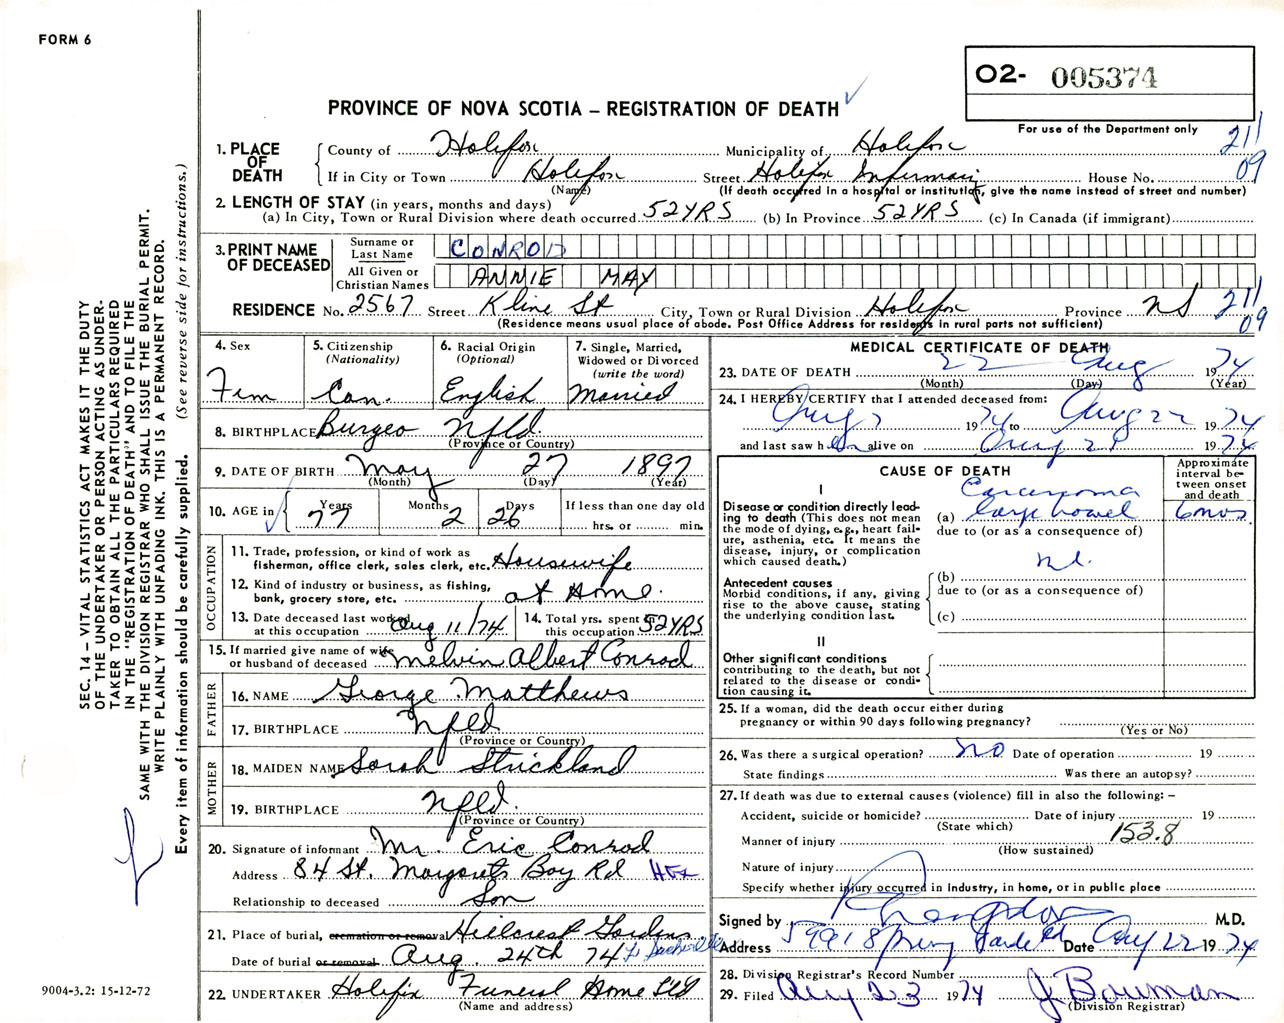 FORM 6
O2- 005374
PROVINCE OF NOVA SCOTIA – REGISTRATION OF DEATH
For use of the Department only
211
09
1. PLACE OF DEATH
County of Halifax Municipality of Halifax
If in City or Town Halifax Street Halifax Infirmary House No.
(Name) (If death occurred in a hospital or institution, give the name instead of street and number)
2. LENGTH OF STAY (in years, months and days)
(a) In City, Town or Rural Division where death occurred 52 YRS (b) In Province 52 YRS (c) In Canada (if immigrant)
3. PRINT NAME OF DECEASED
Surname or Last Name CONROD
All Given or Christian Names ANNIE MAY
RESIDENCE No. 2567 Street Kline St City, Town or Rural Division Halifax Province NS
211
09
(Residence means usual place of abode. Post Office Address for residents in rural parts not sufficient)
4. Sex
Fem
5. Citizenship (Nationality)
Can.
6. Racial Origin (Optional)
English
7. Single, Married, Widowed or Divorced (write the word)
Married
8. BIRTHPLACE Burgeo Nfld.
(Province or Country)
9. DATE OF BIRTH May 27 1897
(Month) (Day) (Year)
10. AGE in Years 77 Months 2 Days 26 If less than one day old
hrs. or min.
OCCUPATION
11. Trade, profession, or kind of work as fisherman, office clerk, sales clerk, etc. Housewife
12. Kind of industry or business, as fishing, bank, grocery store, etc. at Home.
13. Date deceased last worked at this occupation Aug 11/74
14. Total yrs. spent in this occupation 52 YRS
15. If married give name of wife or husband of deceased Melvin Albert Conrod
FATHER
16. NAME George Matthews
17. BIRTHPLACE Nfld
(Province or Country)
MOTHER
18. MAIDEN NAME Sarah Strickland
19. BIRTHPLACE Nfld.
(Province or Country)
20. Signature of informant Mr. Eric Conrod
Address 84 St. Margarets Bay Rd Hfx
Relationship to deceased Son
21. Place of burial, cremation or removal Hillcrest Gardens
Date of burial or removal Aug. 24th 74
22. UNDERTAKER Halifax Funeral Home Ltd
(Name and address)
MEDICAL CERTIFICATE OF DEATH
23. DATE OF DEATH 22 Aug 1974
(Month) (Day) (Year)
24. I HEREBY CERTIFY that I attended deceased from:
Aug 7 1974 to Aug 22 1974
and last saw her alive on Aug 21 1974
CAUSE OF DEATH
Approximate interval between onset and death
I
Disease or condition directly leading to death (This does not mean the mode of dying, e.g., heart failure, asthenia, etc. It means the disease, injury, or complication which caused death.)
Carcinoma
(a) large bowel 6 mos.
due to (or as a consequence of)
Antecedent causes
Morbid conditions, if any, giving rise to the above cause, stating the underlying condition last.
(b)
due to (or as a consequence of)
(c)
II
Other significant conditions
contributing to the death, but not related to the disease or condition causing it.
25. If a woman, did the death occur either during pregnancy or within 90 days following pregnancy?
(Yes or No)
26. Was there a surgical operation? NO Date of operation 19
State findings Was there an autopsy?
27. If death was due to external causes (violence) fill in also the following: –
Accident, suicide or homicide? Date of injury 19
(State which)
Manner of injury 153.8
(How sustained)
Nature of injury
Specify whether injury occurred in Industry, in home, or in public place
Signed by M.D.
Address 5991 Spring Garden Rd Date Aug 22 1974
28. Division Registrar's Record Number
29. Filed Aug 23 1974 J Bauman
(Division Registrar)
SEC. 14 – VITAL STATISTICS ACT MAKES IT THE DUTY
OF THE UNDERTAKER OR PERSON ACTING AS UNDER-
TAKER TO OBTAIN ALL THE PARTICULARS REQUIRED
IN THE "REGISTRATION OF DEATH" AND TO FILE THE
SAME WITH THE DIVISION REGISTRAR WHO SHALL ISSUE THE BURIAL PERMIT.
WRITE PLAINLY WITH UNFADING INK. THIS IS A PERMANENT RECORD.
Every item of information should be carefully supplied. (See reverse side for instructions.)
9004-3.2: 15-12-72